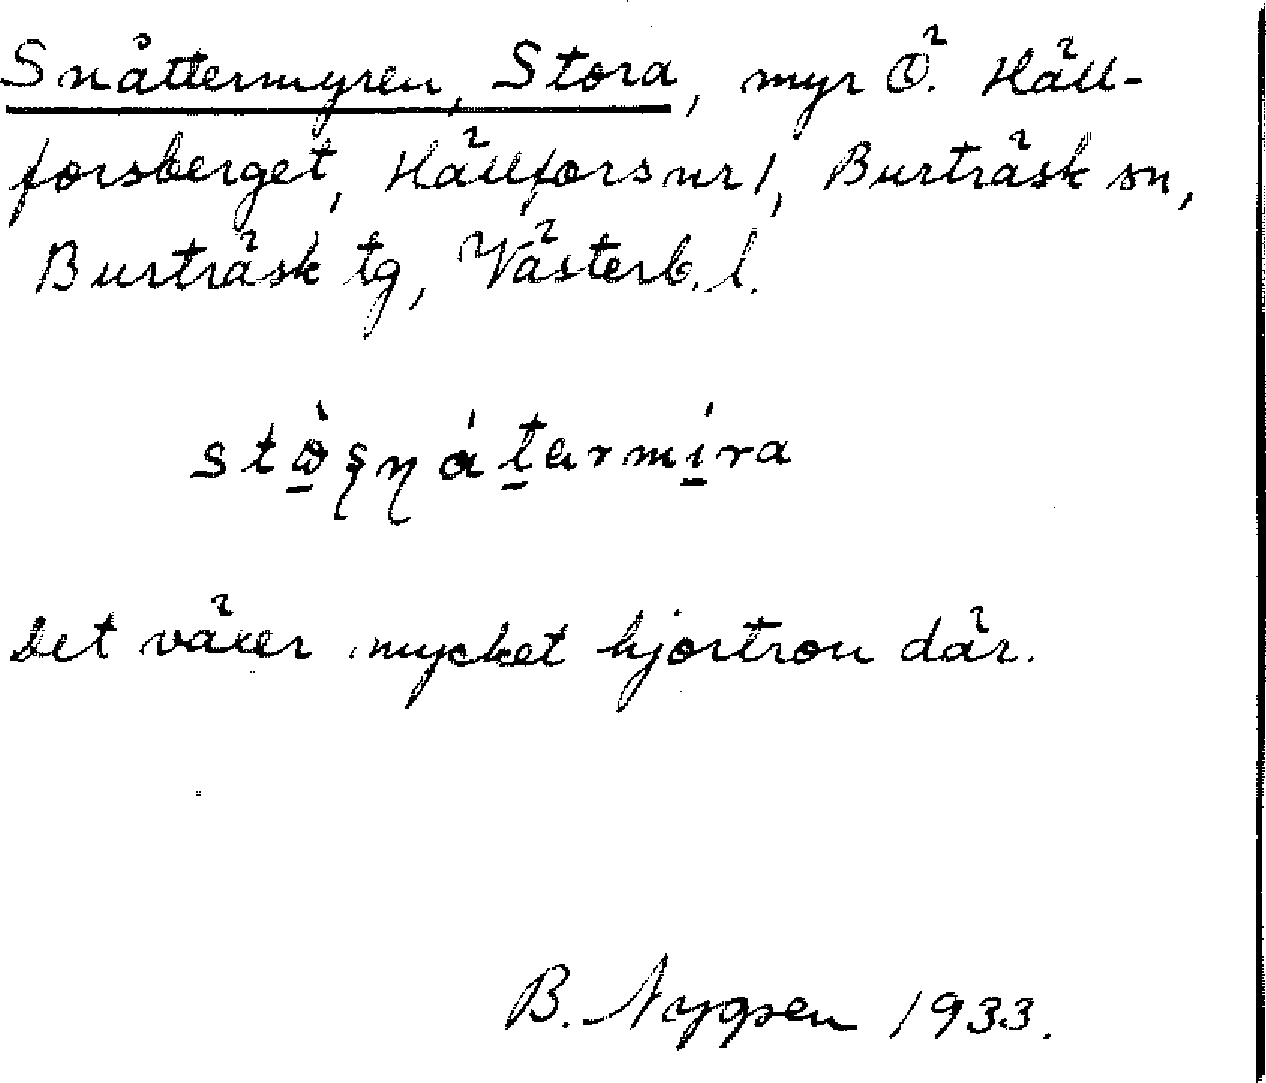 Snåttermyren, Stora, myr Ö. Häll-
forsberget, Hällfors nr 1, Burträsk sn,
Burträsk tg, Västerb. l.
Det växer mycket hjortron där.
B. Nygren 1933.